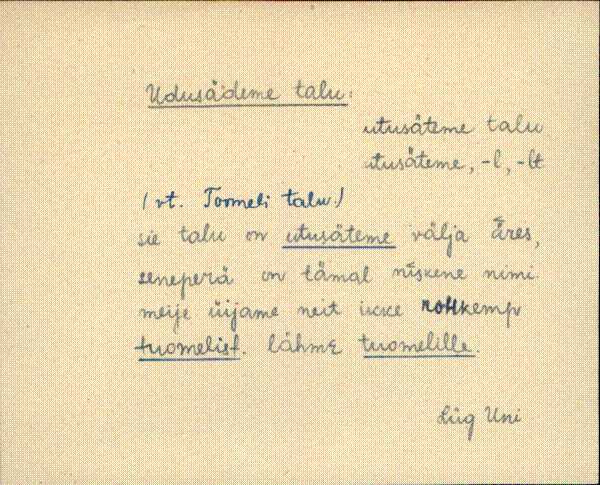 Udusädeme talu:
utusäteme talu
utusäteme, -l, -lt
(vt. Toomeli talu.)
sie talu on utusäteme välja ǟres,
seneperä on tämal nīskene nimi.
meije üijame neit ikke rohkemp
tuomelist. lähme tuomelille.
Lüg Uni